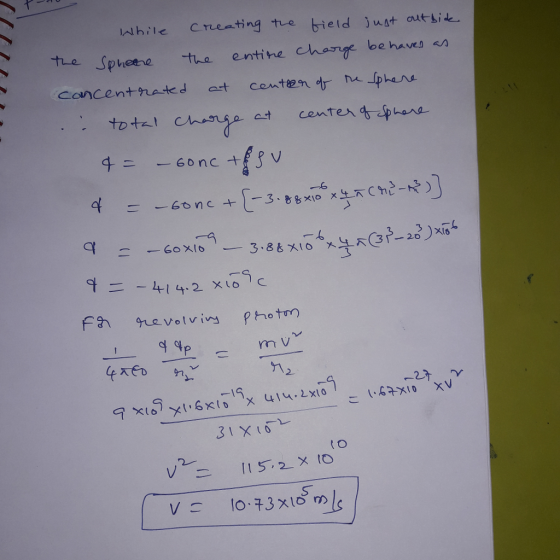 While creating the field just outside
the Sphere the entire charge behaves as
concentrated at center of the sphere
∴ total charge at center of sphere
q = -60nc + ρV
q = -60nc + [-3.88×10⁻⁶ × 4/3 π (r₂³ - r₁³)]
q = -60×10⁻⁹ - 3.88×10⁻⁶ × 4/3 π (31³ - 20³) × 10⁻⁶
q = -414.2 × 10⁻⁹ C
For revolving photon
1/4πε₀ q qp/r₂² = mv²/r₂
9×10⁹ × 1.6×10⁻¹⁹ × 414.2×10⁻⁹ / 31×10⁻² = 1.67×10⁻²⁷ × v²
v² = 115.2 × 10¹⁰
v = 10.73×10⁵ m/s